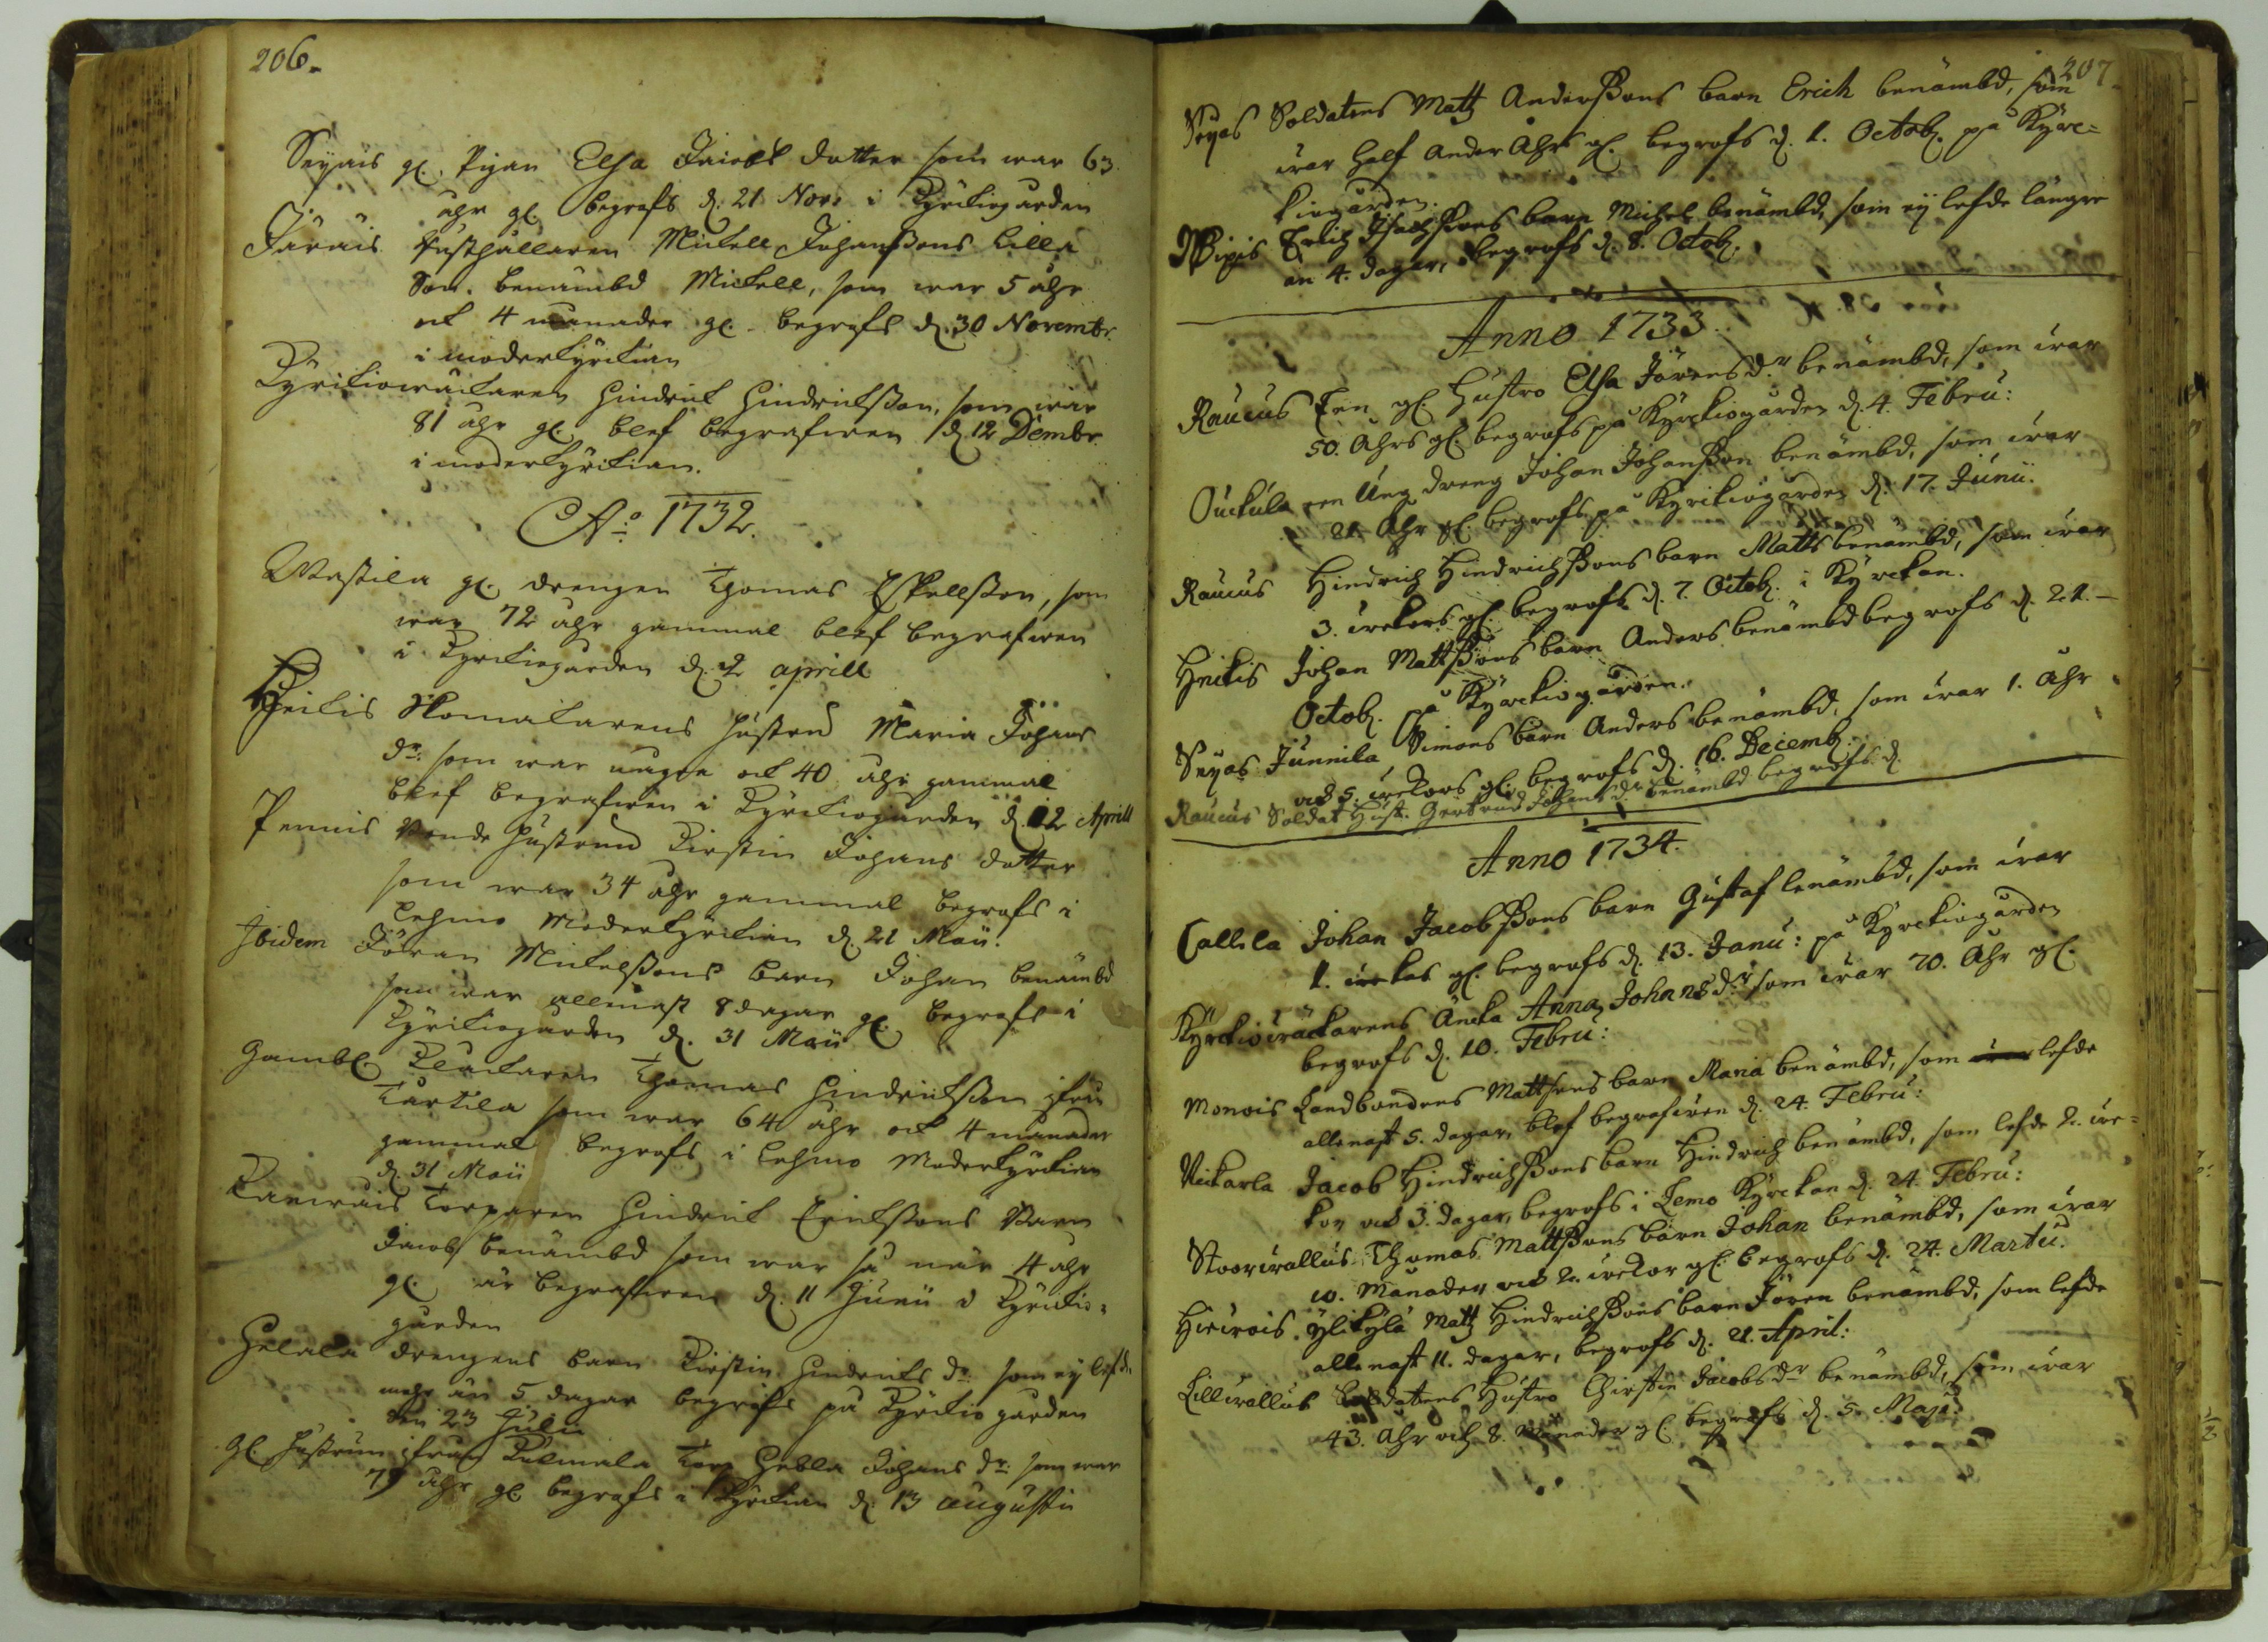 206.
Seÿais gl. Pigan Elsa Jacobs dotter som war 63
åhr gl. begrofs d. 21 Nov: i Kyrkiogården
Järais Rusthållaren Mickell Johanssons lilla
Son. benämbd Mickell, som war 5 åhr
och 4 månader gl. begrofs d. 30 Novembr.
i moderkyrkian
Kyrkiowäcktaren Hindrick Hindricksson, som war
81 åhr gl. blef begrafwen d. 12 Dembr.
i moderkyrkian.
Ao: 1732.
Wastila gl. drengen Thomas Eskellsson, som
war 72 åhr gammal blef begrafwen
i Kyrkiogården d. 2 aprill
Heikis Skomakarens hustru Maria Johans
dr: som war ungfr och 40 åhr gammal
blef begrafwen i Kyrkiogården d. 12 Aprill
Pennis Bonde hustrun Kirstin Johans dotter
som war 34 åhr gammal begrofs i
Lehmo Moderkyrkian d. 21 Maii.
Ibidem Jöran Mickelssons barn Johan benämbd
som war allenast 8 dagar gl. begrofs i
Kyrkiogården d. 31 Maii
Gambl. Klockaren Thomas Hindricksson ifrån
Tartila som war 64 åhr och 4 månader
gammal begrofs i Lehmo Moderkyrkian
d. 31 Maii
Torparen Hindrick Erickssons Barn
Jacob benämbd som war på når 4 åhr
gl. är begrafwen d. 11 Junii i Kyrkio=
gården
Helala drengens barn Kirstin Hindricks dr: som ej lefde
mehr än 5 dagar begrofs på Kyrkio gården
den 23 Julii
Gl. hustrun ifrån Torp Hebla Johans dr: som war
79 åhr gl. begrofs i Kyrkian d. 13 augustii
207.
Seyas Soldatens Matz Anderssons barn Erich benämbd, som
war half annor Åhrs gl. begrofs d. 1. Octob. på Kyrc=
kiogården.
Pipis Erich Isachssons barn Michel benämbd, som ej lefde längre
än 4. dagar, begrofs d. 8. Octob.
Anno 1733.
Raucus Een gl. Hustro Elsa Jörensdr benämbd, som war
50. Åhrs gl. begrofs på Kyrckiogården d. 4. Febru:
Ouckula een Ung dreng Johan Johansson benämbd, som war
21. Åhr gl. begrofs på Kyrckiogården d. 17. Junii.
Raucus Hindrich Hindrichssons barn Matts benämbd, som war
3. weckors gl. begrofs d. 7. Octob. i Kyrckan.
Heickis Johan Mattssons barn Anders benämbd begrofs d. 21.
Octob. på Kyrckiogården.
Seyas Junnila Simons barn Anders benämbd, som war 1. Åhr
och 5. weckors gl. begrofs d. 16. Decemb.
Raucus Soldat Hust. Gertrud Johansdr benämbd begrofs d.
Anno 1734.
Callela Johan Jacobssons barn Gustaf benämbd, som war
1. weckas gl. begrofs d. 13. Janu: på Kyrckiogården
Kyrckiowäcktarens Äncka Anna Johansdr som war 70. Åhr gl.
begrofs d. 10. Febru:
Monois Landbondens Mattsons barn Maria benämbd, som war lefde
allenast 5. dagar, blef begrafwen d. 24. Febru:
Nickarla Jacob Hindrichssons barn Hindrich benämbd, som lefde 2. we=
kor och 3. dagar, begrofs i Lemo Kyrckan d. 24. Febru:
Stoorwallus Thomas Mattssons barn Johan benämbd, som war
10. Månader och 2. weckor gl. begrofs d. 24. Martii.
Hiewois Ylikylä Matz Hindrichssons barn Jören benämbd, som lefde
allenast 11. dagar, begrofs d. 21. April:
Lillwallus Soldatens Hustro Christin Jacobsdr benämbd, som war
43. Åhr och 8. Månader gl. begrofs d. 5. Maji.